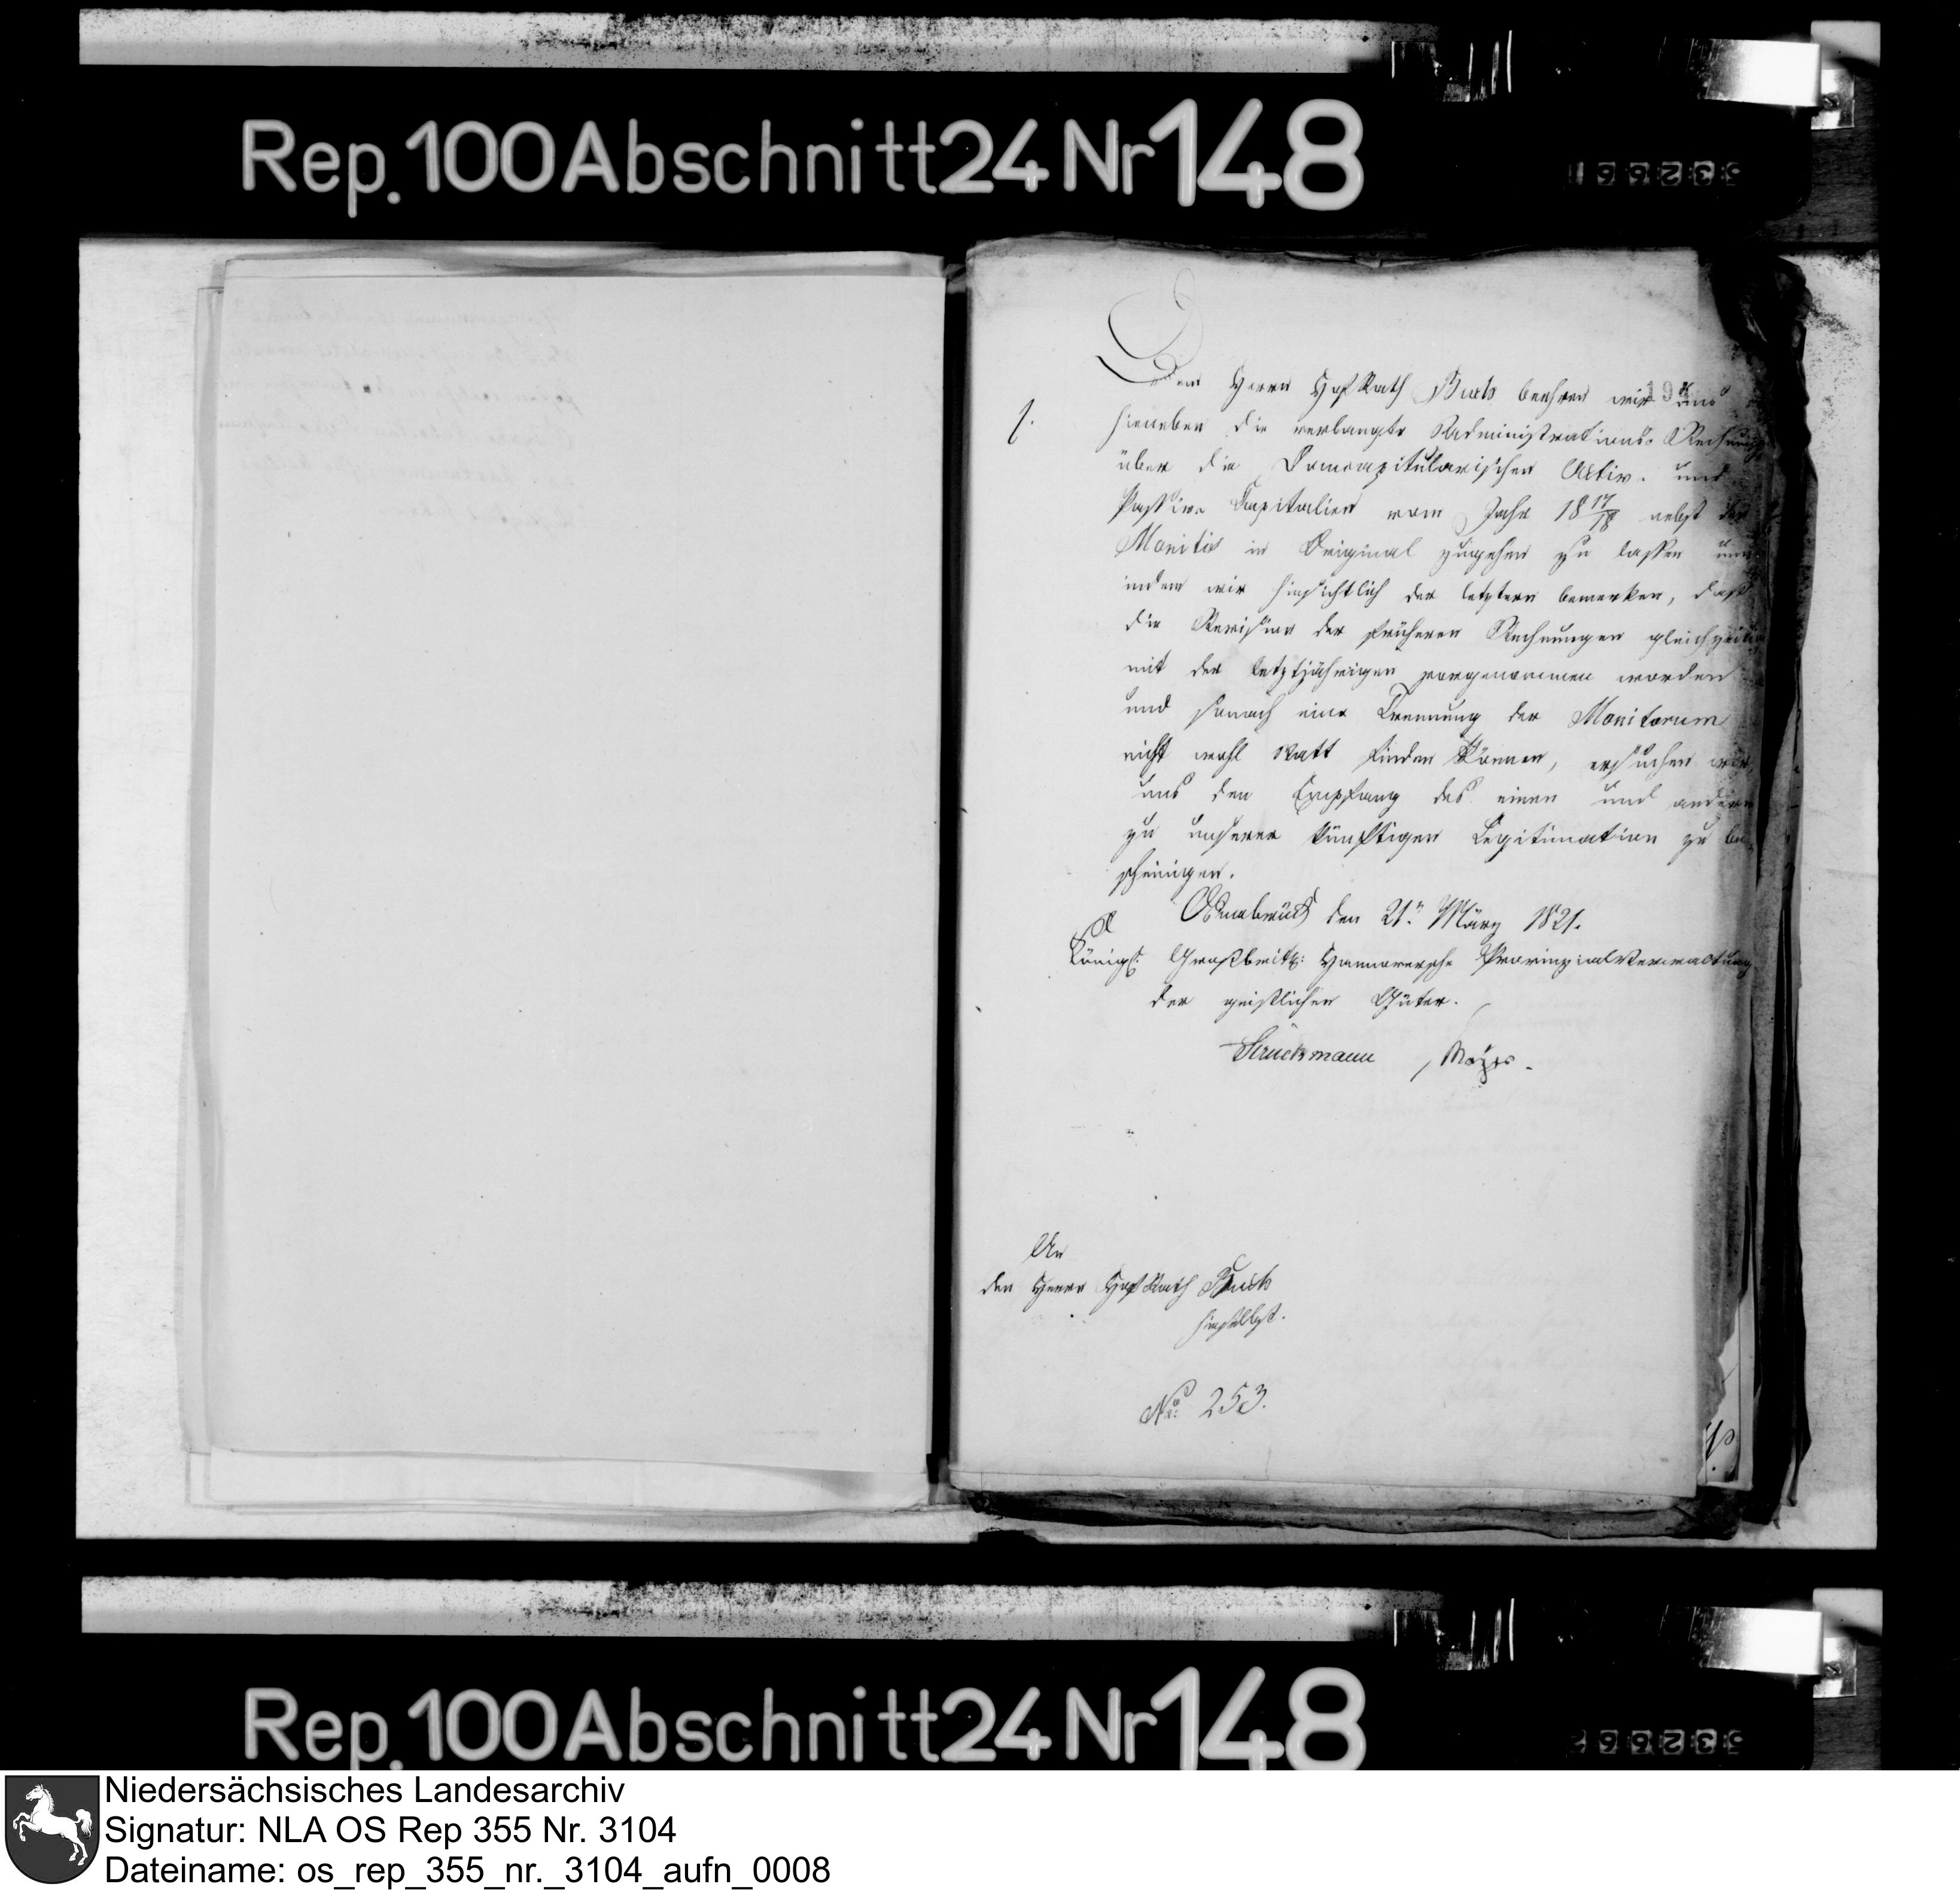 Rep. 100 Abschnitt 24 Nr 148
198
Dem Herrn Hof Rath Buch beehren wir uns
1.
hieneben die verlangte Administrations-Rechnung
über die Domcapitularischen Activ- und
Passiv-Capitalien vom Jahr 18 17/18 nebst den
Monitis in Original zugehen zu lassen und
indem wir hinsichtlich der letztern bemerken, daß
die Revision der früheren Rechnungen gleichzeitig
mit der letztjährigen vorgenommen worden
und sonach eine Trennung der Monitorum
nicht wohl statt finden können, ersuchen wir,
uns den Empfang des einen und andern
zu unserer künftigen Legitimation zu be-
scheinigen.
Osnabrück den 21n März 1821.
Königl: Großbritt: Hannoversche ProvinzialVerwaltung
der geistlichen Güter.
Struckmann Meyer.
An
den Herrn Hof Rath Buch
hieselbst.
No: 253.
Rep. 100 Abschnitt 24 Nr 148
Niedersächsisches Landesarchiv
Signatur: NLA OS Rep 355 Nr. 3104
Dateiname: os_rep_355_nr._3104_aufn_0008